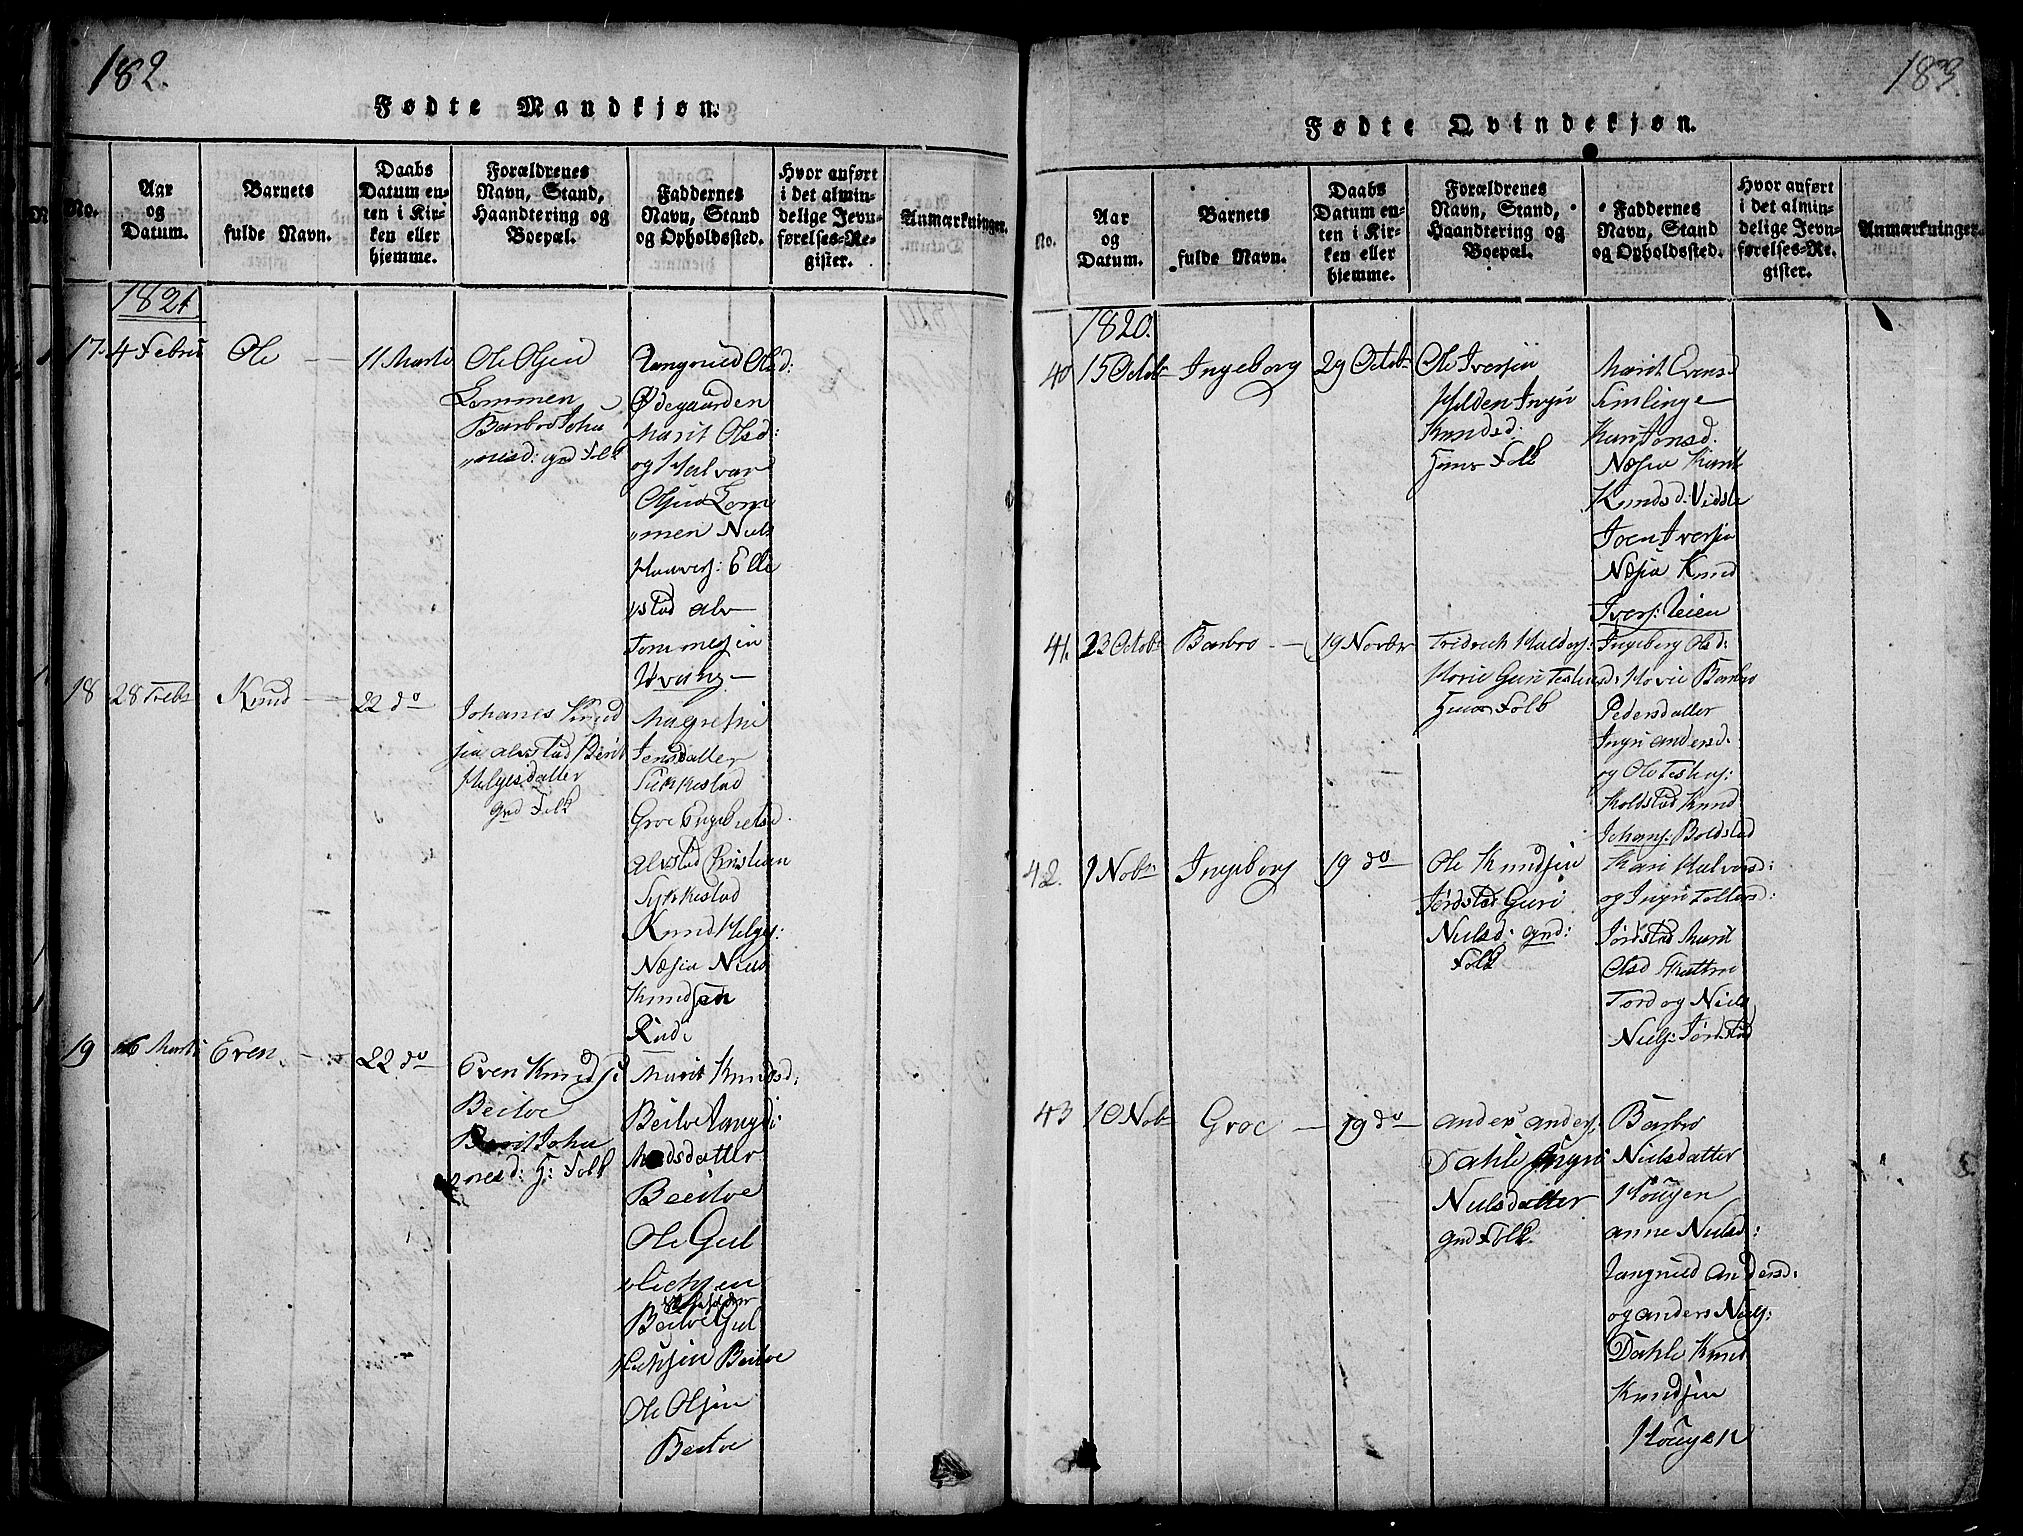 182.
Fødte Mandkjøn.
No.
Aar
og
Datum.
Barnets
fulde Navn.
Daabs
Datum en-
ten i Kir-
ken eller
hjemme.
Forældrenes
Navn, Stand,
Haandtering og
Boepæl.
Faddernes
Navn, Stand
og Opholdssted.
Hvor anført
i det almin-
delige Jevn-
førelses-Re-
gister.
Anmærkninger.
1821
17. 4 Febru
Ole
11 Marti
Ole Olsen
Lommen
Barbro Joha
"nesd: grd Folk
Rangnied Olsd:
Ødegaarden
Marit Olsd:
og Halvar
Olsen Lom
"men Niels
Haavers: Elle
"stad
Tommesen
18 28 Febr
Knud
22 do
Johanes Knud
sen Alvstad Berit
Helgesdatter
grd Folk
Magrethe
Jensdatter
Sykkestad
Groe Engebretsd.
Alvstad Kristian
Sykkestad
Knud Helges:
Næsja Niels
Knudsen
Rudi
19 6 Marti
Even
22 do
Even Knuds
Beitoe
Berit Joha
"nesd: H: Folk
Marit Knudsd:
Beitoe Rangdi
Madsdatter
Beitoe
Ole Gul
Beitoe Gul
Beitoe
Ole Olsen
Beitoe
183.
Fødte Qvindekjøn.
No.
Aar
og
Datum.
Barnets
fulde Navn.
Daabs
Datum en-
ten i Kir-
ken eller
hjemme.
Forældrenes
Navn, Stand,
Haandtering og
Boepæl.
Faddernes
Navn, Stand
og Opholdssted.
Hvor anført
i det almin-
delige Jevn-
førelses-Re-
gister.
Anmærkninger.
1820.
40 15 Octob
Ingeborg
29 Octob
Ole Iversen
Hilden Ingri
Knudsd:
Huus Folk
Marit Evensd
Kari Jonsd.
Næsja Marit
Knudsd:
Joen Iversen
Næsja Knud
Ivers: Veien
41. 23 Octob
Barbro
19 Novbr
Fridrich Haldors:
Hovie Guri
Huus Folk
Ingeborg Olsd:
Hovie Barbro
Pedersdatter
Ingri Andersd.
og Ole
Knud
Johans: Boldstad
42. 1 Nobr
Ingeborg
19 do
Ole Knudsen
Jordstad Guri
Nielsd: grd:
Folk
Kari Halvorsd:
og Ingri Tollefsd:
Jordstad Marit
Olsd
Tord og Niels
Niels: Jordstad
43 10 Nob
Groe
19 do
Anders Anders:
Dahle Ingri
Nielsdatter
grd Folk
Barbro
Nielsdatter
Hougen
Anne Nielsd:
Rangnied Andersd:
og Anders Niels:
Dahle Knud
Knudsen
Hougen